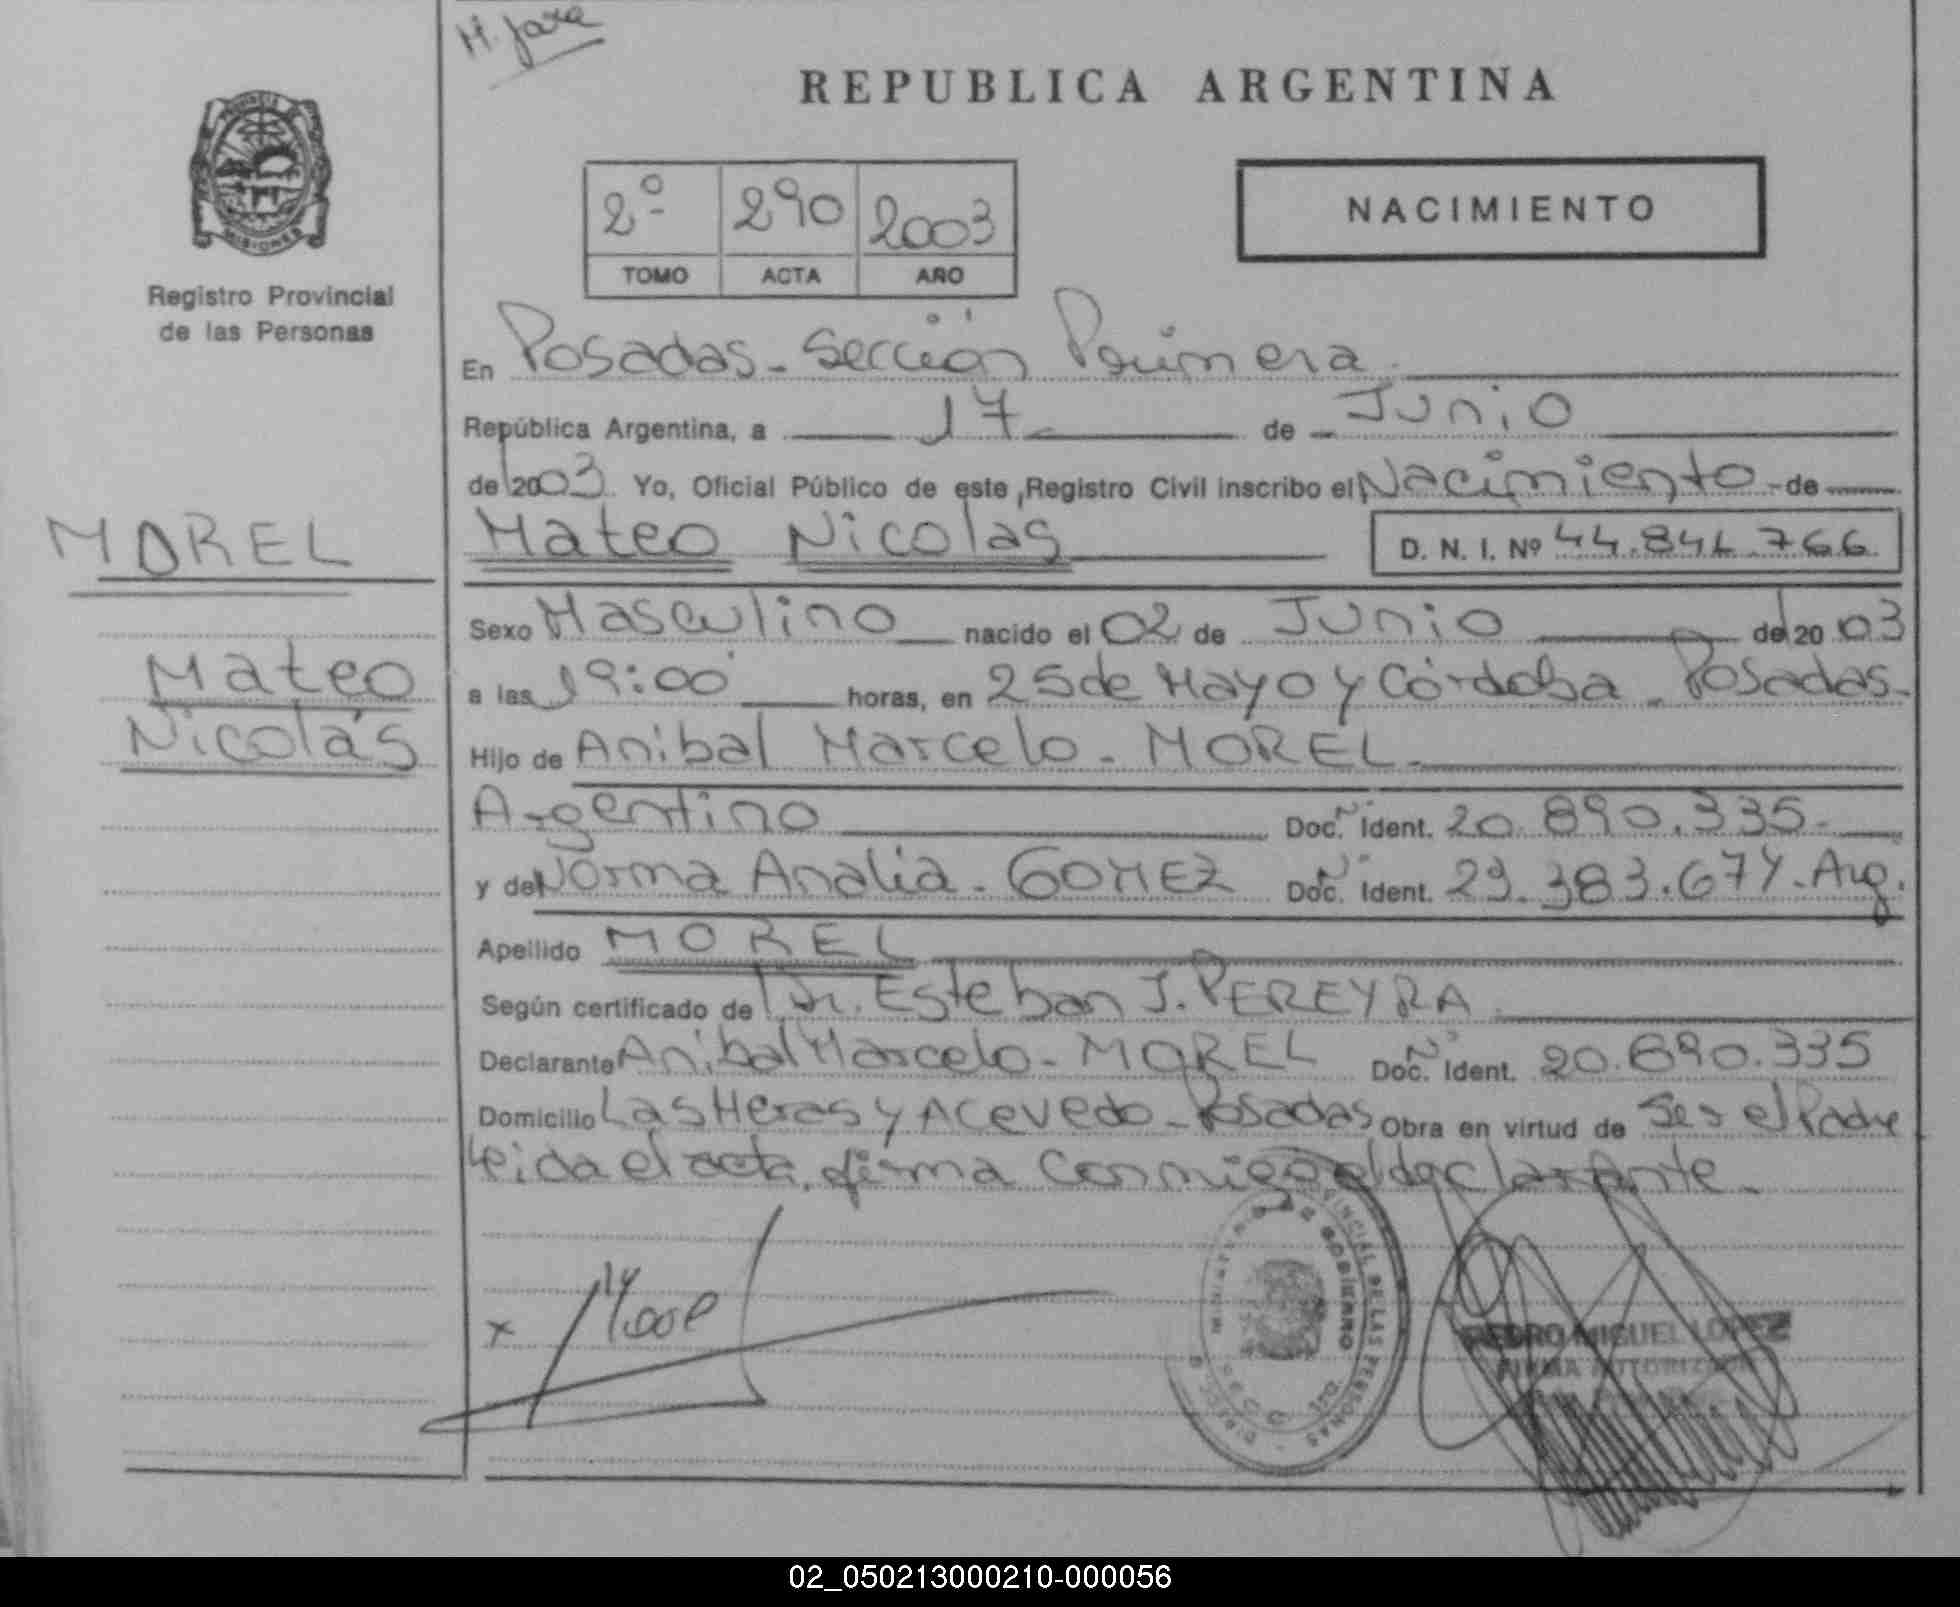 H. Jara
REPUBLICA ARGENTINA
PROVINCIA DE
MISIONES
Registro Provincial
de las Personas
2º 290 2003
TOMO ACTA AÑO
NACIMIENTO
En Posadas - Sección Primera
República Argentina, a 17 de Junio
de 2003 Yo, Oficial Público de este Registro Civil inscribo el Nacimiento de
MOREL
Mateo Nicolás D. N. I. Nº 44.841.766
Sexo Masculino nacido el 02 de Junio de 2003
Mateo
a las 19:00 horas, en 25 de Mayo y Córdoba - Posadas-
Nicolás
Hijo de Anibal Marcelo - MOREL -
Argentino Doc. Nº Ident. 20.890.335.
y de Norma Analia - GOMEZ Doc. Nº Ident. 23.383.674. Arg.
Apellido MOREL
Según certificado de Dr. Esteban J. PEREYRA
Declarante Anibal Marcelo - MOREL Doc. Nº Ident. 20.890.335
Domicilio Las Heras y Acevedo - Posadas Obra en virtud de ser el Padre
Leida el acta, firma conmigo el declarante.
x Morel
MINISTERIO DE GOBIERNO
PROVINCIAL DE LAS PERSONAS
PEDRO MIGUEL LOPEZ
FIRMA AUTORIZADA
02_050213000210-000056